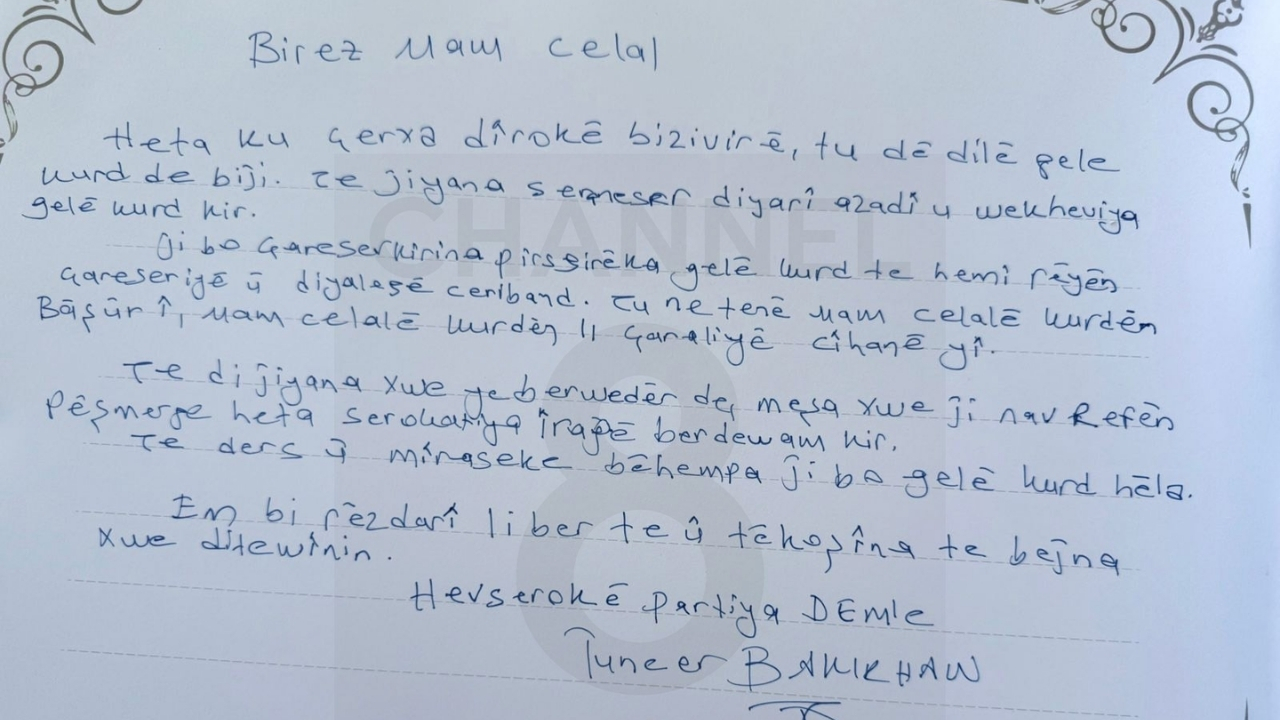 Birez Mam celal
Heta ku çerxa dîrokê bizivirê, tu dê dilê gele
kurd de biji. Te jiyana serneser diyarî azadî u wekheviya
gelê kurd kir.
Ji bo çareserkirina pirsgirêka gelê kurd te hemi rêyên
çareseriyê û diyalogê ceriband. Tu ne tenê Mam celalê kurdên
Başûr î, Mam celalê kurdên li çaraliyê cîhanê yî.
Te di jiyana xwe ye berwedêr de, meşa xwe ji nav Refên
Pêşmerge heta serokatiya Îraqê berdewam kir.
Te ders û mîraseke bêhempa ji bo gelê kurd hêla.
Em bi rêzdarî li ber te û têkoşîna te bejna
xwe ditewînin.
Hevserokê partiya DEMle
Tuncer BAKIRHAN
CHANNEL
8